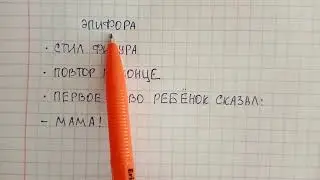 ЭПИФОРА
· СТИЛ
· ПОВТОР КОНЦЕ
· ПЕРВОЕ РЕБЁНОК СКАЗАЛ:
– МАМА!